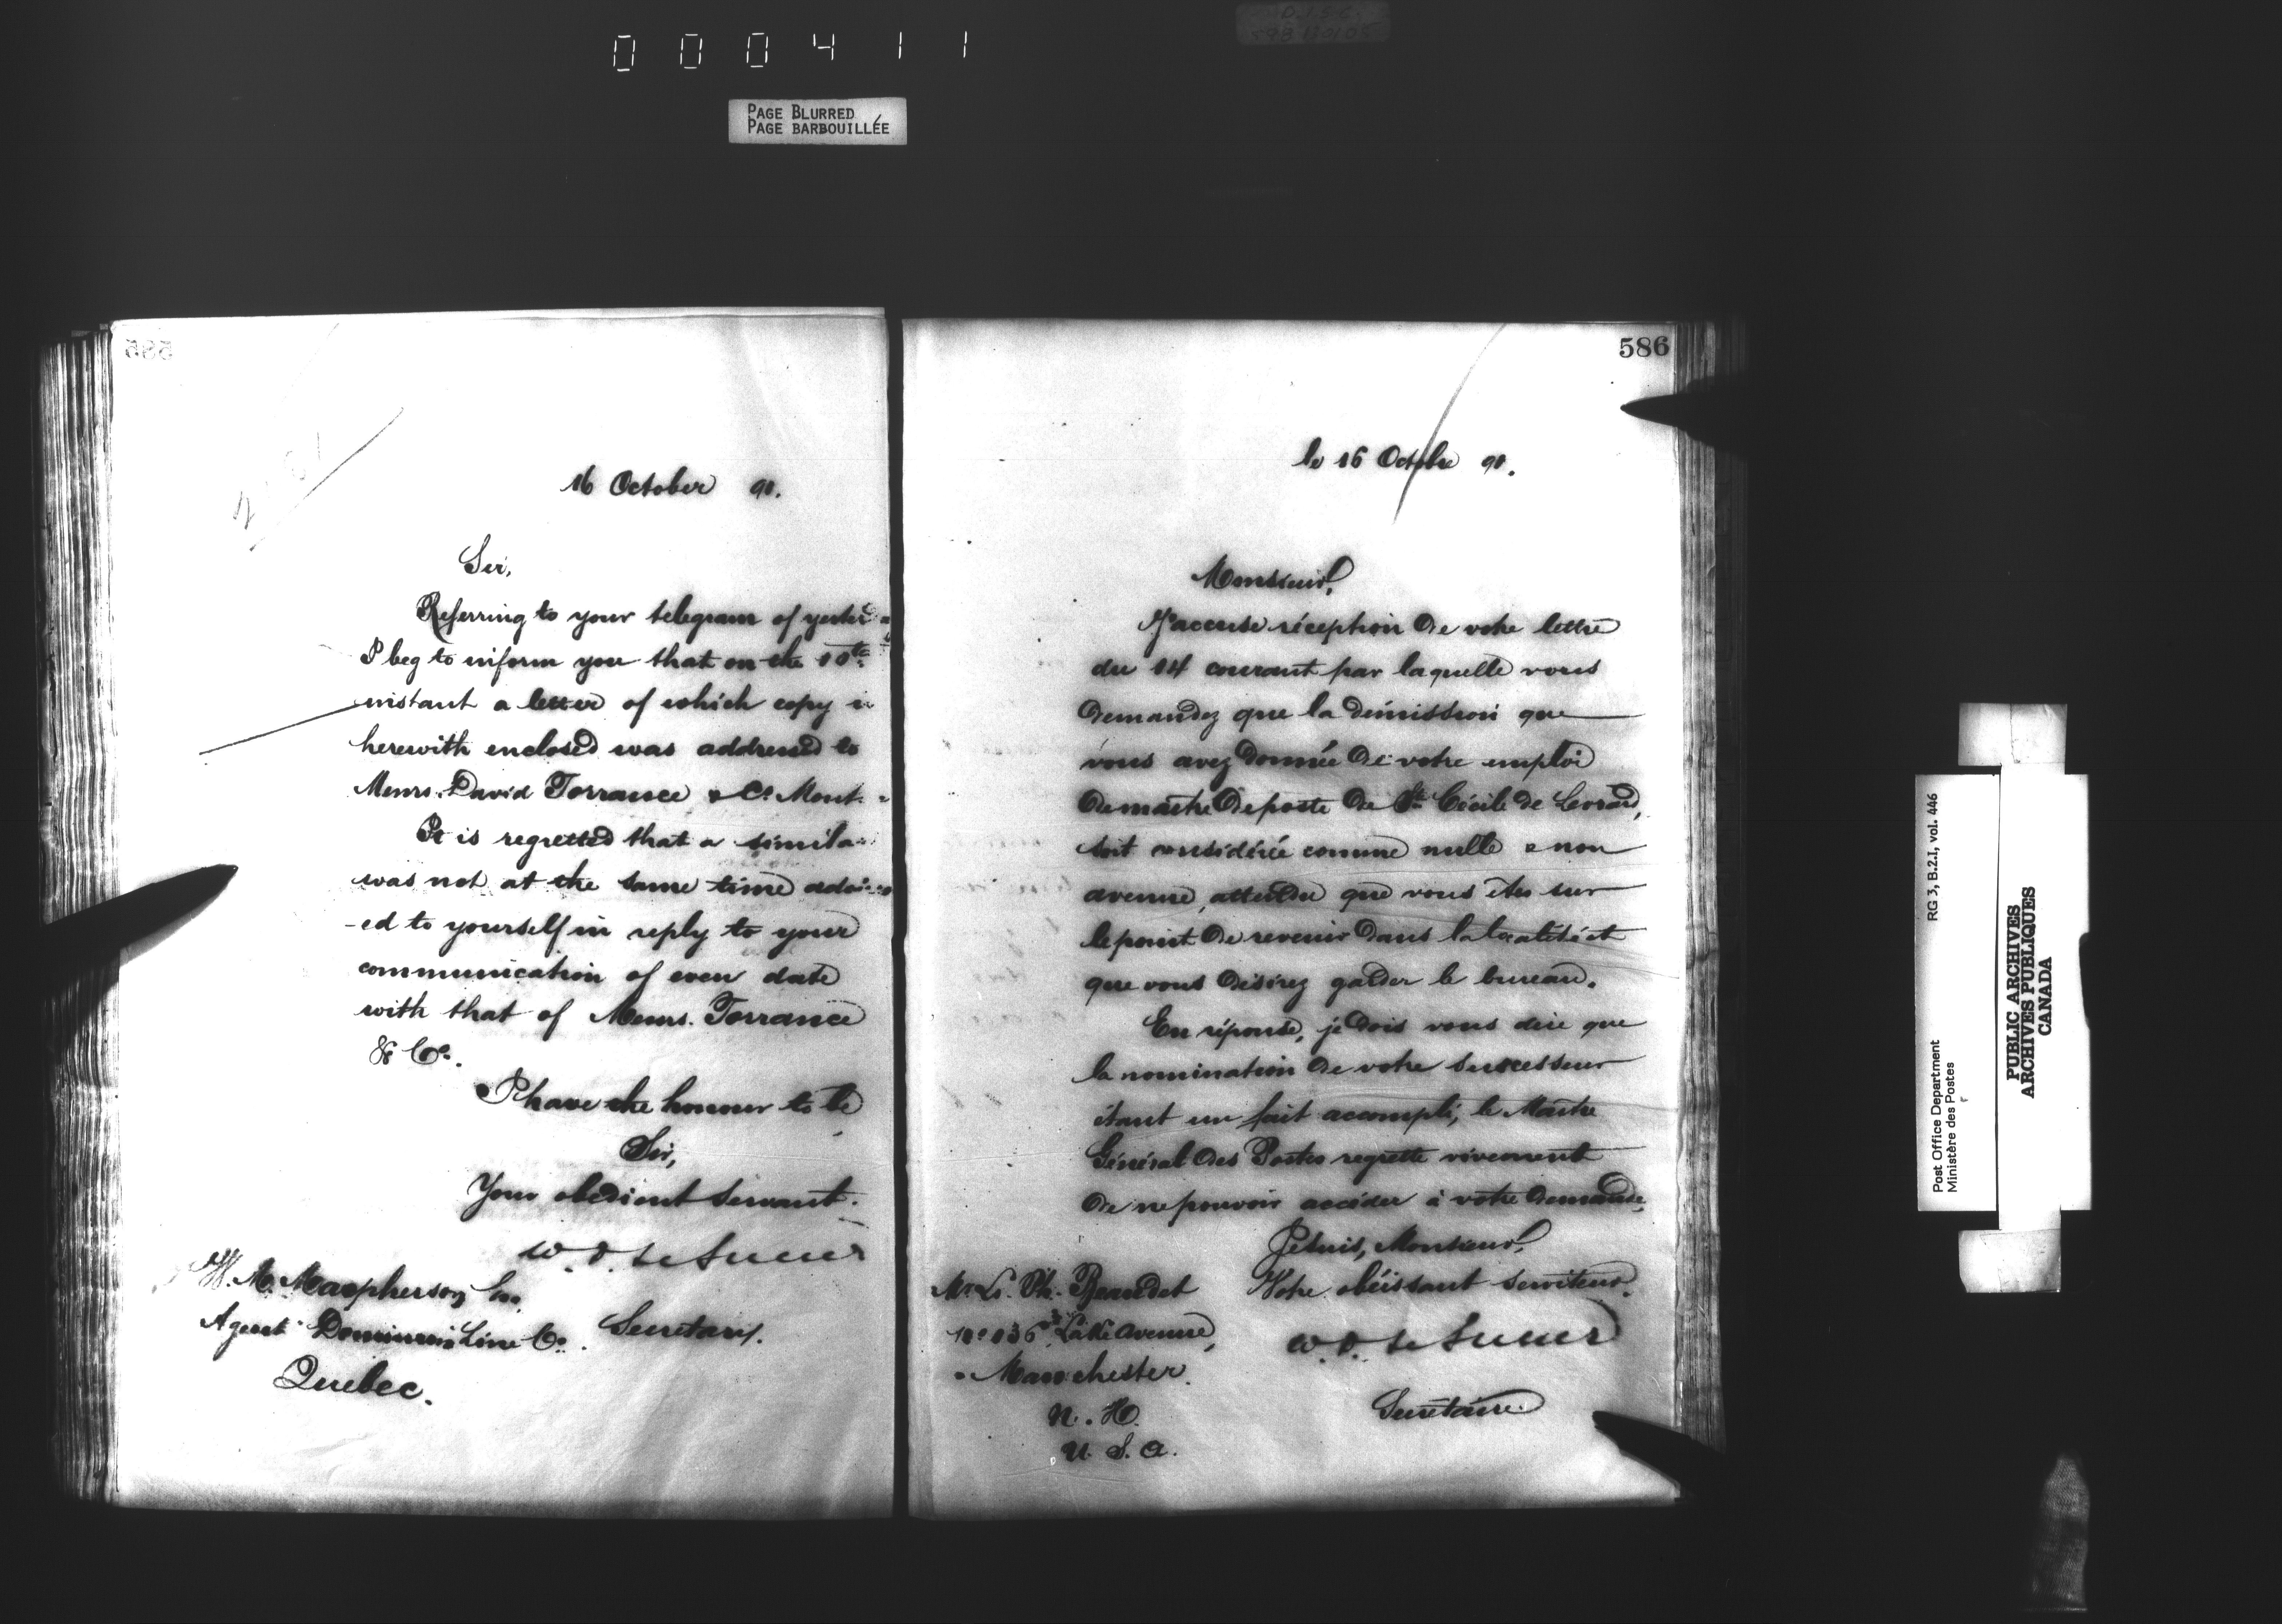 000411
PAGE BLURRED
PAGE BARBOUILLÉE
585
16 October 91.
Sir,
Referring to your telegram of yester
I beg to inform you that on the 10th
instant a letter of which copy is
herewith enclosed was addressed to
Messrs. David Torrance & Co. Mont
It is regretted that a simila
was not at the same time
-ed to yourself in reply to your
communication of even date
with that of Messrs. Torrance
& Co.
I have the honour to be
Sir,
Your obedient Servant.
W. D. Le Sueur
Secretary.
W. M. Macpherson
Agent Dominion Line Co.
Quebec.
586
le 16 Octobre 91.
Monsieur,
J'accuse réception de votre lettre
du 14 courant par laquelle vous
demandez que la démission que
vous avez donnée de votre emploi
de maître de poste de Ste Cécile de
soit considérée comme nulle & non
avenue, attendu que vous êtes sur
le point de revenir dans la localité et
que vous désirez garder le bureau.
En réponse, je dois vous dire que
la nomination de votre successeur
étant un fait accompli, le Maître
Général des Postes regrette vivement
de ne pouvoir accéder à votre demande.
Je suis, Monsieur,
Votre obéissant serviteur.
W. D. Le Sueur
Secrétaire.
Mr. L. Ph. Beaudet
Lake Avenue,
Manchester.
N. H.
U. S. A.
Post Office Department
Ministère des Postes
RG 3, B.2.1, vol. 446
PUBLIC ARCHIVES
ARCHIVES PUBLIQUES
CANADA